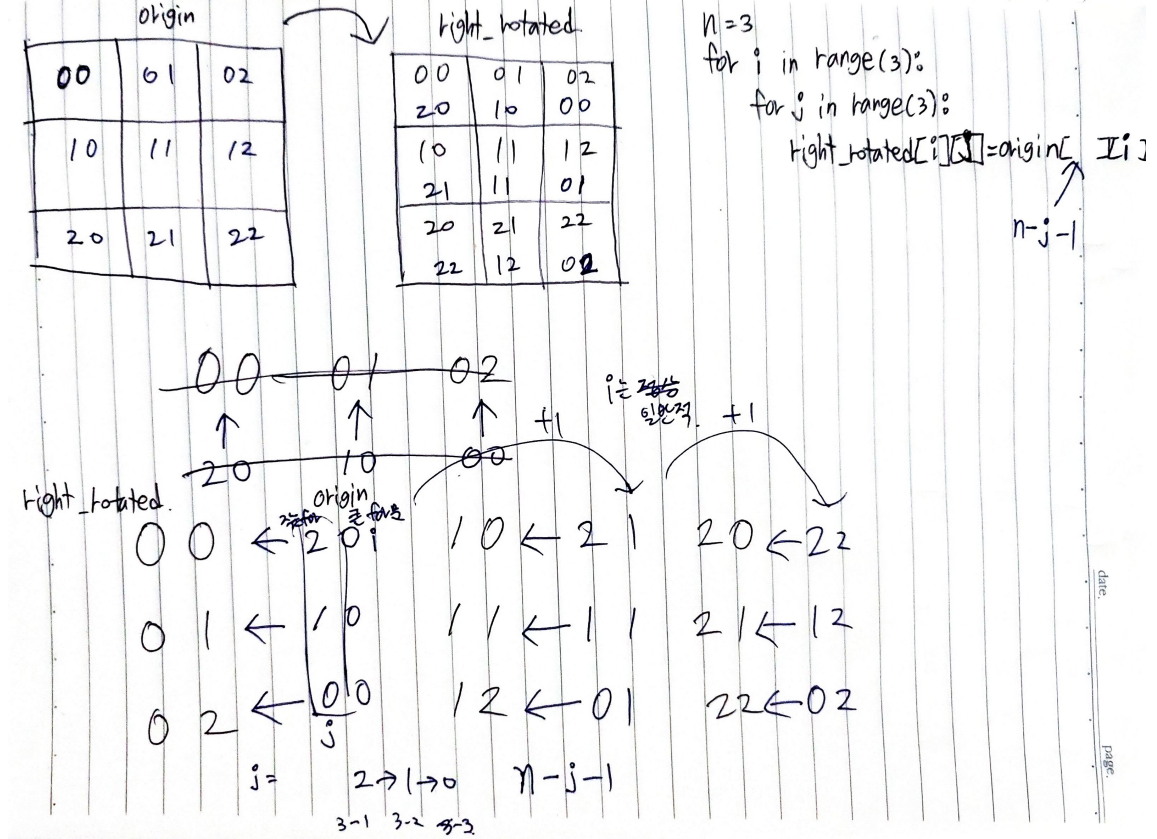 origin
00 01 02
10 11 12
20 21 22
right_rotated
00 01 02
20 10 00
10 11 12
21 11 01
20 21 22
22 12 02
n=3
for i in range(3):
for j in range(3):
right_rotated[i][j]=origin[ ][i]
n-j-1
00 01 02
20 10 00
i는
일반적
+1
+1
right_rotated.
origin
00 ← 20 i
10 ← 21
20 ← 22
01 ← 10
11 ← 11
21 ← 12
02 ← 00
12 ← 01
22 ← 02
j
j= 2→1→0 n-j-1
3-1 3-2 3-3
date.
page.